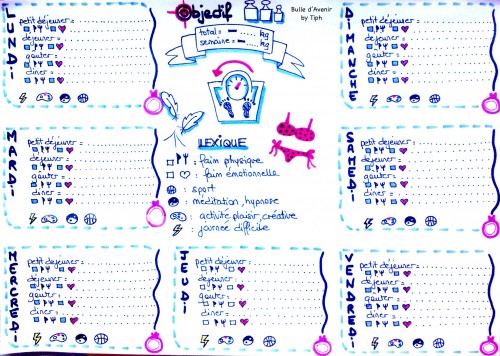 LUNDI
petit déjeuner :
déjeuner :
goûter :
dîner :
Objectif
total = - kg
semaine = - kg
Bulle d'Avenir
by Tiph
DIMANCHE
petit déjeuner :
déjeuner :
goûter :
dîner :
MARDI
petit déjeuner :
déjeuner :
goûter :
dîner :
LEXIQUE
: faim physique
: faim émotionnelle
: sport
: méditation, hypnose
: activité plaisir, créative
: journée difficile
SAMEDI
petit déjeuner :
déjeuner :
goûter :
dîner :
MERCREDI
petit déjeuner :
déjeuner :
goûter :
dîner :
JEUDI
petit déjeuner :
déjeuner :
goûter :
dîner :
VENDREDI
petit déjeuner :
déjeuner :
goûter :
dîner :